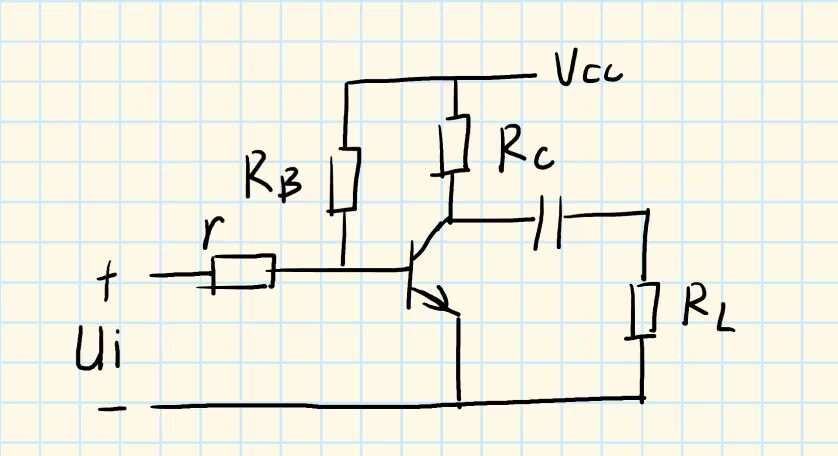 Vcc
RB
RC
r
+
Ui
RL
−